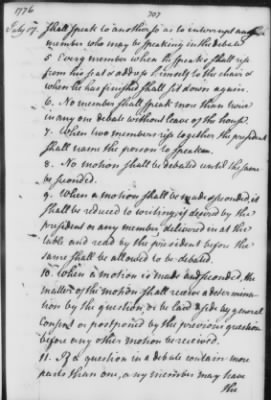 1776
707
July 17. shall speak to another so as to interrupt any
member who may be speaking in the debate
5 Every member when he speaks shall rise
from his seat & address himself to the chair &
when he has finished shall sit down again.
6. No member shall speak more than twice
in any one debate without leave of the house.
7. When two members rise together the president
shall name the person to speak.
8. No motion shall be debated until the same
be seconded.
9. When a motion shall be made & seconded, it
shall be reduced to writing, if desired by the
president or any member, delivered in at the
table and read by the president before the
same shall be allowed to be debated.
10. When a motion is made and seconded, the
matter of the motion shall receive a determina-
tion by the question, or be laid aside by general
consent or postponed by the previous question
before any other motion be received.
11. If a question in a debate contain more
parts than one, any member may have
the